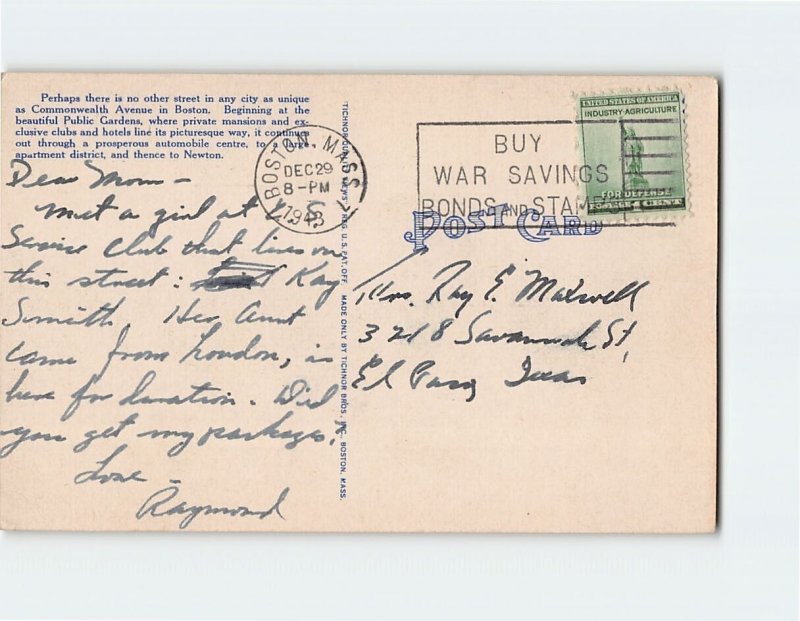 Perhaps there is no other street in any city as unique
as Commonwealth Avenue in Boston. Beginning at the
beautiful Public Gardens, where private mansions and ex-
clusive clubs and hotels line its picturesque way, it continues
out through a prosperous automobile centre, to a large
apartment district, and thence to Newton.
Dear Mom –
Met a girl at
Service Club that lives on
this street: Kay
Smith. Her Aunt
came from London, is
here for duration. Did
you get my packages?
Love –
Raymond
TICHNOR QUALITY VIEWS REG. U.S. PAT. OFF. MADE ONLY BY TICHNOR BROS., INC., BOSTON, MASS.
BOSTON, MASS.
DEC 29
8-PM
1943
BUY
WAR SAVINGS
BONDS AND STAMPS
UNITED STATES OF AMERICA
INDUSTRY-AGRICULTURE
FOR DEFENSE
1 CENT
POST CARD
Mrs. Ray E. Maxwell
3218 Savannah St,
El Paso, Texas